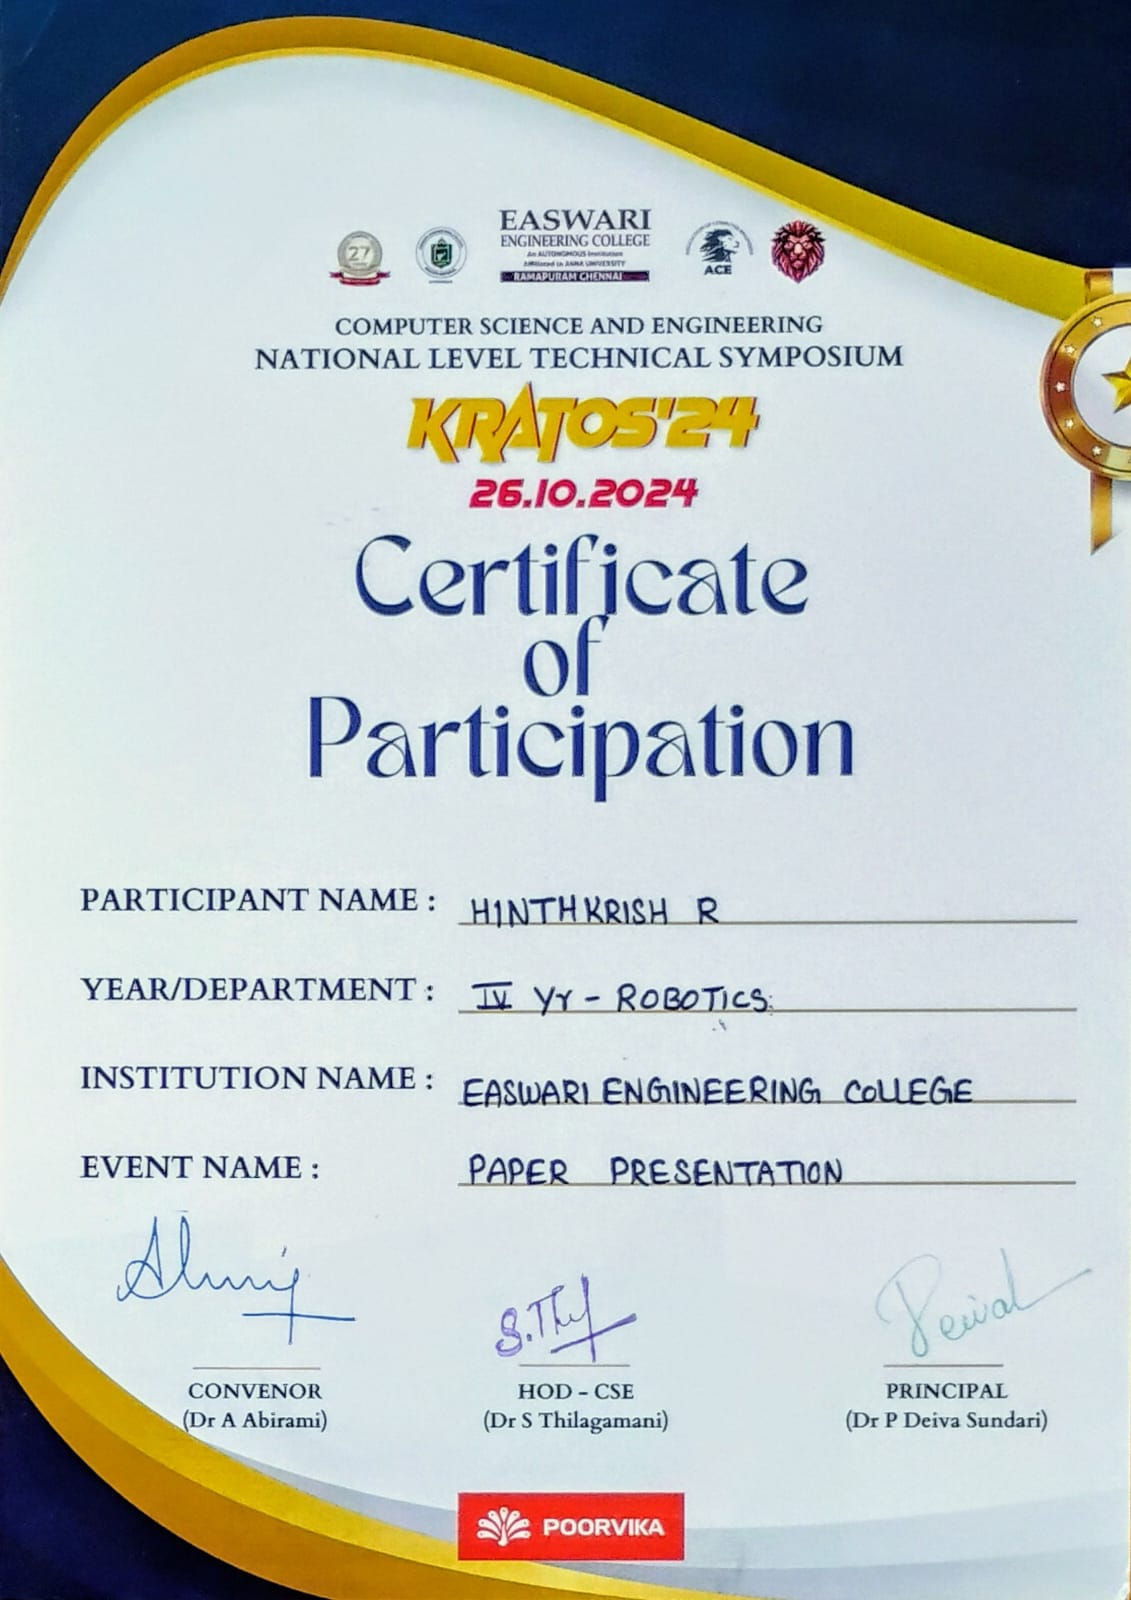 27
EASWARI
ENGINEERING COLLEGE
An AUTONOMOUS Institution
Affiliated to ANNA UNIVERSITY
RAMAPURAM CHENNAI
ACE
COMPUTER SCIENCE AND ENGINEERING
NATIONAL LEVEL TECHNICAL SYMPOSIUM
KRATOS'24
26.10.2024
Certificate
of
Participation
PARTICIPANT NAME : HINTHKRISH R
YEAR/DEPARTMENT : IV Yr - ROBOTICS
INSTITUTION NAME : EASWARI ENGINEERING COLLEGE
EVENT NAME : PAPER PRESENTATION
S.Thf
CONVENOR HOD - CSE PRINCIPAL
(Dr A Abirami) (Dr S Thilagamani) (Dr P Deiva Sundari)
POORVIKA